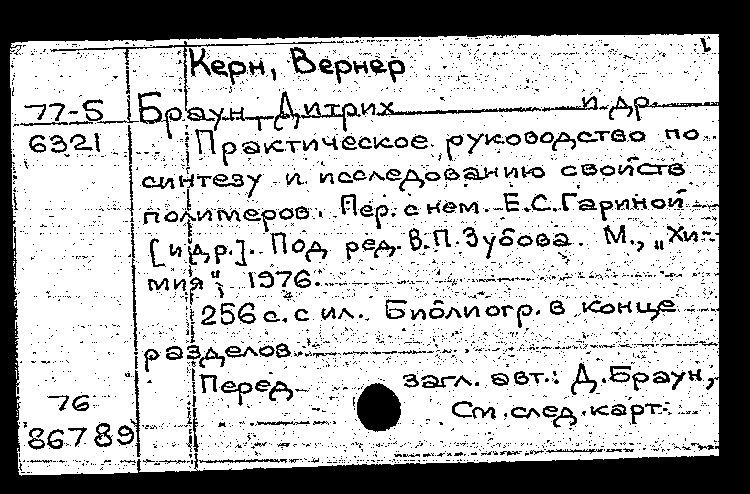 Керн, Вернер
77-5 Браун, Дитрих и др.
6321 Практическое руководство по
синтезу и исследованию свойств
полимеров. Пер. с нем. Е.С.Гариной
[и др.]. Под ред. В.П.Зубова. М., „Хи-
мия", 1976.
256 с. с ил. Библиогр. в конце
разделов.
Перед загл. авт.: Д.Браун,
76 См. след. карт.
86789